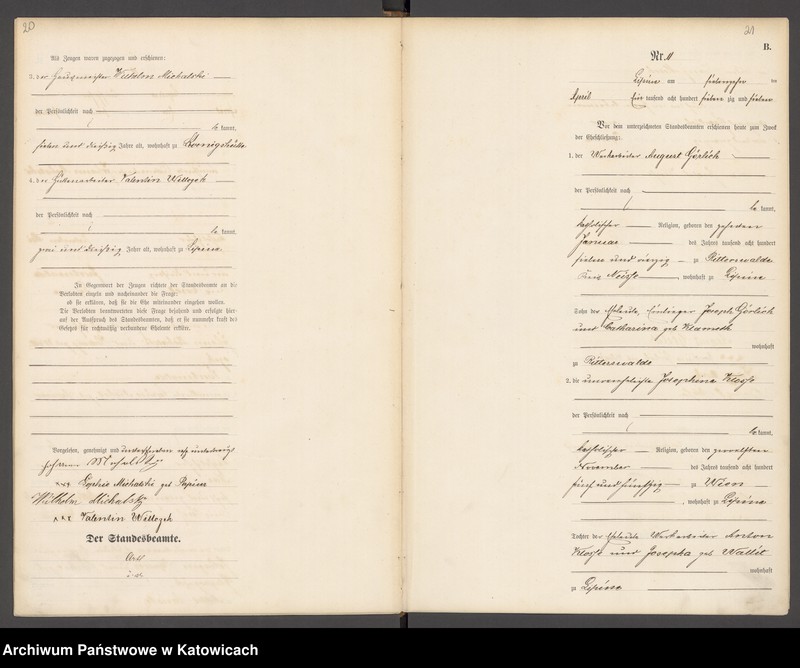 20
Als Zeugen waren zugezogen und erschienen:
3. der Hausmeister Wilhelm Michalski
der Persönlichkeit nach
be kannt,
sieben und dreißig Jahre alt, wohnhaft zu Koenigshütte
4. der Hüttenarbeiter Valentin Willozek
der Persönlichkeit nach
be kannt,
zwei und dreißig Jahre alt, wohnhaft zu Lipine
In Gegenwart der Zeugen richtete der Standesbeamte an die
Verlobten einzeln und nacheinander die Frage:
ob sie erklären, daß sie die Ehe miteinander eingehen wollen.
Die Verlobten beantworteten diese Frage bejahend und erfolgte hier-
auf der Ausspruch des Standesbeamten, daß er sie nunmehr kraft des
Gesetzes für rechtmäßig verbundene Eheleute erkläre.
Vorgelesen, genehmigt und
Johann
xxx Sophie Michalski geb
Wilhelm Michalsky
xxx Valentin Willozek
Der Standesbeamte.
21
B.
Nr. 11
Lipine am siebenzehn ten
April Ein tausend acht hundert sieben zig und sieben
Vor dem unterzeichneten Standesbeamten erschienen heute zum Zweck
der Eheschließung:
1. der Werkarbeiter August Görlich
der Persönlichkeit nach
be kannt,
katholischer Religion, geboren den
Januar des Jahres tausend acht hundert
sieben und vierzig zu Ritterswalde
Kreis Neisse, wohnhaft zu Lipine
Sohn der Eheleute, Einlieger Joseph Görlich
und Catharina geb
wohnhaft
zu Ritterswalde
2. die unverehelichte Josephine Kloss
der Persönlichkeit nach
be kannt,
katholischer Religion, geboren den zwoelften
November des Jahres tausend acht hundert
fünf und fünfzig zu Wien
, wohnhaft zu Lipine
Tochter der Eheleute Werkarbeiter Anton
Kloss und Josepha geb Wallet
wohnhaft
zu Lipine
Archiwum Państwowe w Katowicach